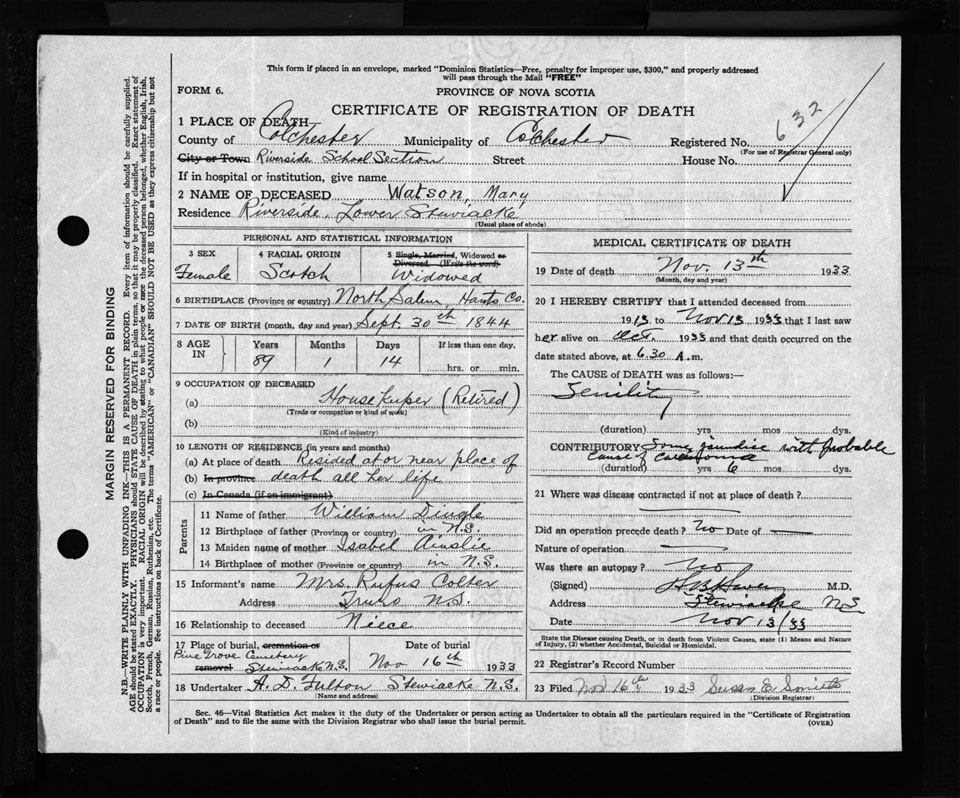 This form if placed in an envelope, marked "Dominion Statistics—Free, penalty for improper use, $300," and properly addressed
will pass through the Mail "FREE"
FORM 6.
PROVINCE OF NOVA SCOTIA
CERTIFICATE OF REGISTRATION OF DEATH
632
1 PLACE OF DEATH
County of Colchester Municipality of Colchester Registered No.
(For use of Registrar General only)
City or Town Riverside School Section Street House No.
If in hospital or institution, give name
2 NAME OF DECEASED Watson, Mary
Residence Riverside, Lower Stewiacke
(Usual place of abode)
PERSONAL AND STATISTICAL INFORMATION
3 SEX
Female
4 RACIAL ORIGIN
Scotch
5 Single, Married, Widowed or
Divorced. (Write the word)
Widowed
6 BIRTHPLACE (Province or country) North Salem, Hants Co.
7 DATE OF BIRTH (month, day and year) Sept. 30th 1844
8 AGE IN
Years Months Days If less than one day.
89 1 14 hrs. or min.
9 OCCUPATION OF DECEASED
(a) House Keeper (Retired)
(Trade or occupation or kind of work)
(b)
(Kind of industry)
10 LENGTH OF RESIDENCE (in years and months)
(a) At place of death Resided at or near place of
(b) In province death all her life
(c) In Canada (if an immigrant)
Parents
11 Name of father William Dingle
12 Birthplace of father (Province or country) in N.S.
13 Maiden name of mother Isabel Ainslie
14 Birthplace of mother (Province or country) in N.S.
15 Informant's name Mrs. Rufus Colter
Address Truro N.S.
16 Relationship to deceased Niece
17 Place of burial, cremation or removal Date of burial
Pine Grove Cemetery
Stewiacke N.S. Nov 16th 1933
18 Undertaker A. D. Fulton Stewiacke N.S.
(Name and address)
MEDICAL CERTIFICATE OF DEATH
19 Date of death Nov. 13th 1933
(Month, day and year)
20 I HEREBY CERTIFY that I attended deceased from
1913 to Nov 13 1933 that I last saw
her alive on Oct. 1933 and that death occurred on the
date stated above, at 6.30 A.m.
The CAUSE of DEATH was as follows:—
Senility
(duration) yrs mos dys.
CONTRIBUTORY Some jaundice with probable
Cause of Carcinoma
(duration) yrs 6 mos dys.
21 Where was disease contracted if not at place of death?
Did an operation precede death? No Date of
Nature of operation
Was there an autopsy? No
(Signed) M.D.
Address Stewiacke NS
Date Nov 13/33
State the Disease causing Death, or in death from Violent Causes, state (1) Means and Nature
of Injury, (2) whether Accidental, Suicidal or Homicidal.
22 Registrar's Record Number
23 Filed Nov 16th 1933 Susan E.
(Division Registrar)
Sec. 46—Vital Statistics Act makes it the duty of the Undertaker or person acting as Undertaker to obtain all the particulars required in the "Certificate of Registration
of Death" and to file the same with the Division Registrar who shall issue the burial permit.
(OVER)
MARGIN RESERVED FOR BINDING
N.B.—WRITE PLAINLY WITH UNFADING INK—THIS IS A PERMANENT RECORD. Every item of information should be carefully supplied.
AGE should be stated EXACTLY. PHYSICIANS should STATE CAUSE OF DEATH in plain terms, so that it may be properly classified. Exact statement of
OCCUPATION is very important. RACIAL ORIGIN will be described by stating to what people or race the deceased person belonged, whether English, Irish,
Scotch, French, German, Russian, Ruthenian, etc. The terms "AMERICAN" or "CANADIAN" SHOULD NOT BE USED as they express citizenship but not
a race or people. See instructions on back of Certificate.